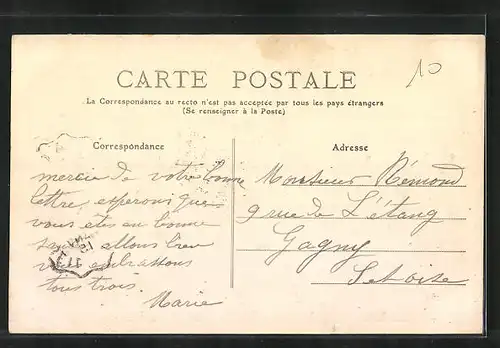 10
CARTE POSTALE
La Correspondance au recto n'est pas acceptée par tous les pays étrangers
(Se renseigner à la Poste)
Correspondance
Adresse
mercie de votre bonne
lettre, esperons que
vous êtes en bonne
allons bien
embrassons
tous trois.
Marie
Monsieur Rémond
9 rue de L'étang
Gagny
Set oise